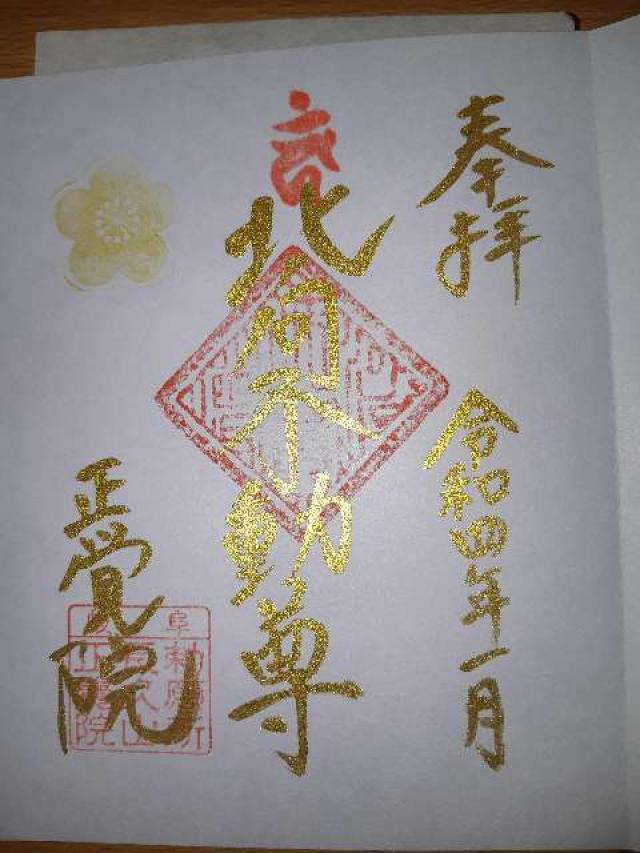 奉拝
令和四年一月
北向不動尊
正覚院